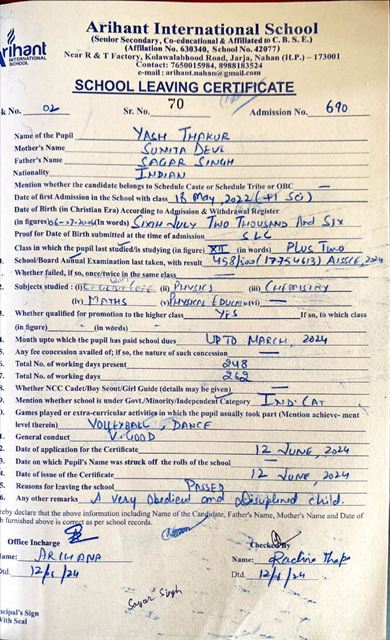 Arihant International School
(Senior Secondary, Co-educational & Affiliated to C. B. S. E.)
(Affilation No. 630340, School No. 42077)
Arihant INTERNATIONAL SCHOOL
Near R & T Factory, Kolawalabhood Road, Jarja, Nahan (H.P.) – 173001
Contact: 7650015984, 8988183524
e-mail : arihant.nahan@gmail.com
SCHOOL LEAVING CERTIFICATE
k No. 02 Sr. No. 70 Admission No. 690
Name of the Pupil YASH THAKUR
Mother's Name SUNITA DEVI
Father's Name SAGAR SINGH
Nationality INDIAN
Mention whether the candidate belongs to Schedule Caste or Schedule Tribe or OBC —
Date of first Admission in the School with class 18 May, 2022 (+1 Sci)
Date of Birth (in Christian Era) According to Admission & Withdrawal Register
(in figures) 06-07-2006 (in Words) SIXTH JULY TWO THOUSAND AND SIX
Proof for Date of Birth submitted at the time of admission SLC
Class in which the pupil last studied/is studying (in figure) XII (in words) PLUS TWO
School/Board Annual Examination last taken, with result 458/500 (17754613) AISSCE, 2024
Whether failed, if so, once/twice in the same class —
2. Subjects studied : (i) (ii) PHYSICS (iii) CHEMISTRY
(iv) MATHS (v) PHYSICAL EDUCATION (vi) —
3. Whether qualified for promotion to the higher class YES If so, to which class
(in figure) - (in words) —
4. Month upto which the pupil has paid school dues UPTO MARCH, 2024
5. Any fee concession availed of; if so, the nature of such concession —
6. Total No. of working days present 248
7. Total No. of working days 262
8. Whether NCC Cadet/Boy Scout/Girl Guide (details may be given) —
9. Mention whether school is under Govt./Minority/Independent Category IND. CAT
0. Games played or extra-curricular activities in which the pupil usually took part (Mention achieve- ment
level therein) VOLLEYBALL, DANCE
1. General conduct V. GOOD
2. Date of application for the Certificate 12 JUNE, 2024
3. Date on which Pupil's Name was struck off the rolls of the school —
4. Date of issue of the Certificate 12 JUNE, 2024
5. Reasons for leaving the school PASSED
6. Any other remarks A very obedient and Disciplined child.
reby declare that the above information including Name of the Candidate, Father's Name, Mother's Name and Date of
h furnished above is correct as per school records.
Office Incharge Checked By
ame: ARCHANA Name:
Dtd. 12/6/24 Dtd. 12/6/24
Sagar Singh
ncipal's Sign
With Seal